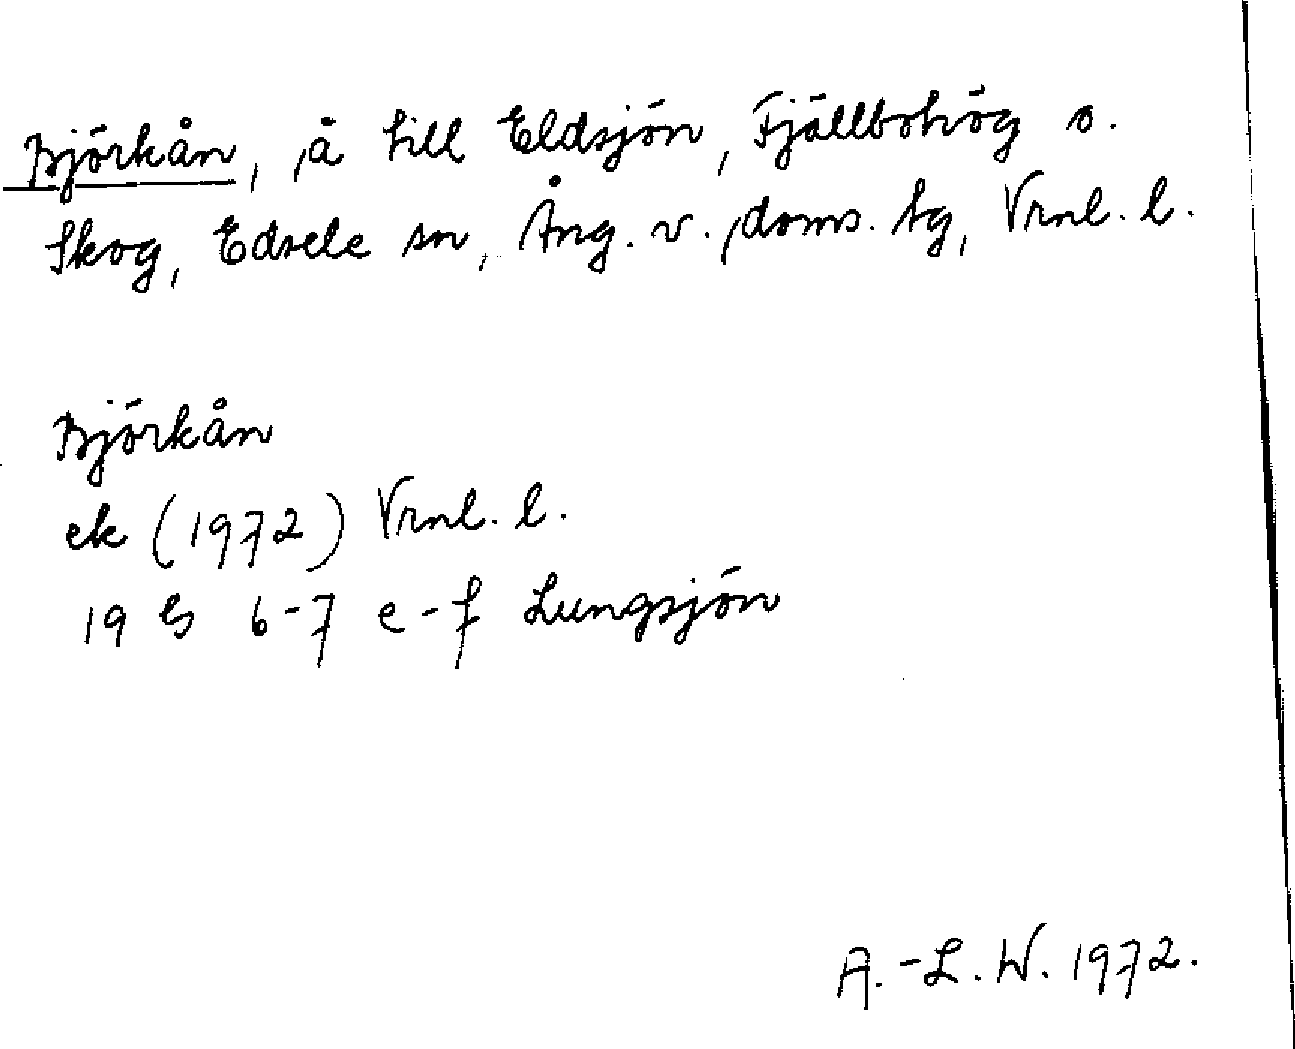 Björkån, å till Eldsjön, Fjällbohög o.
Skog, Edsele sn, Ång. v. doms. tg, Vrnl. l.
Björkån
ek (1972) Vrnl. l.
19 G 6-7 e-f Lungsjön
A.-L. W. 1972.